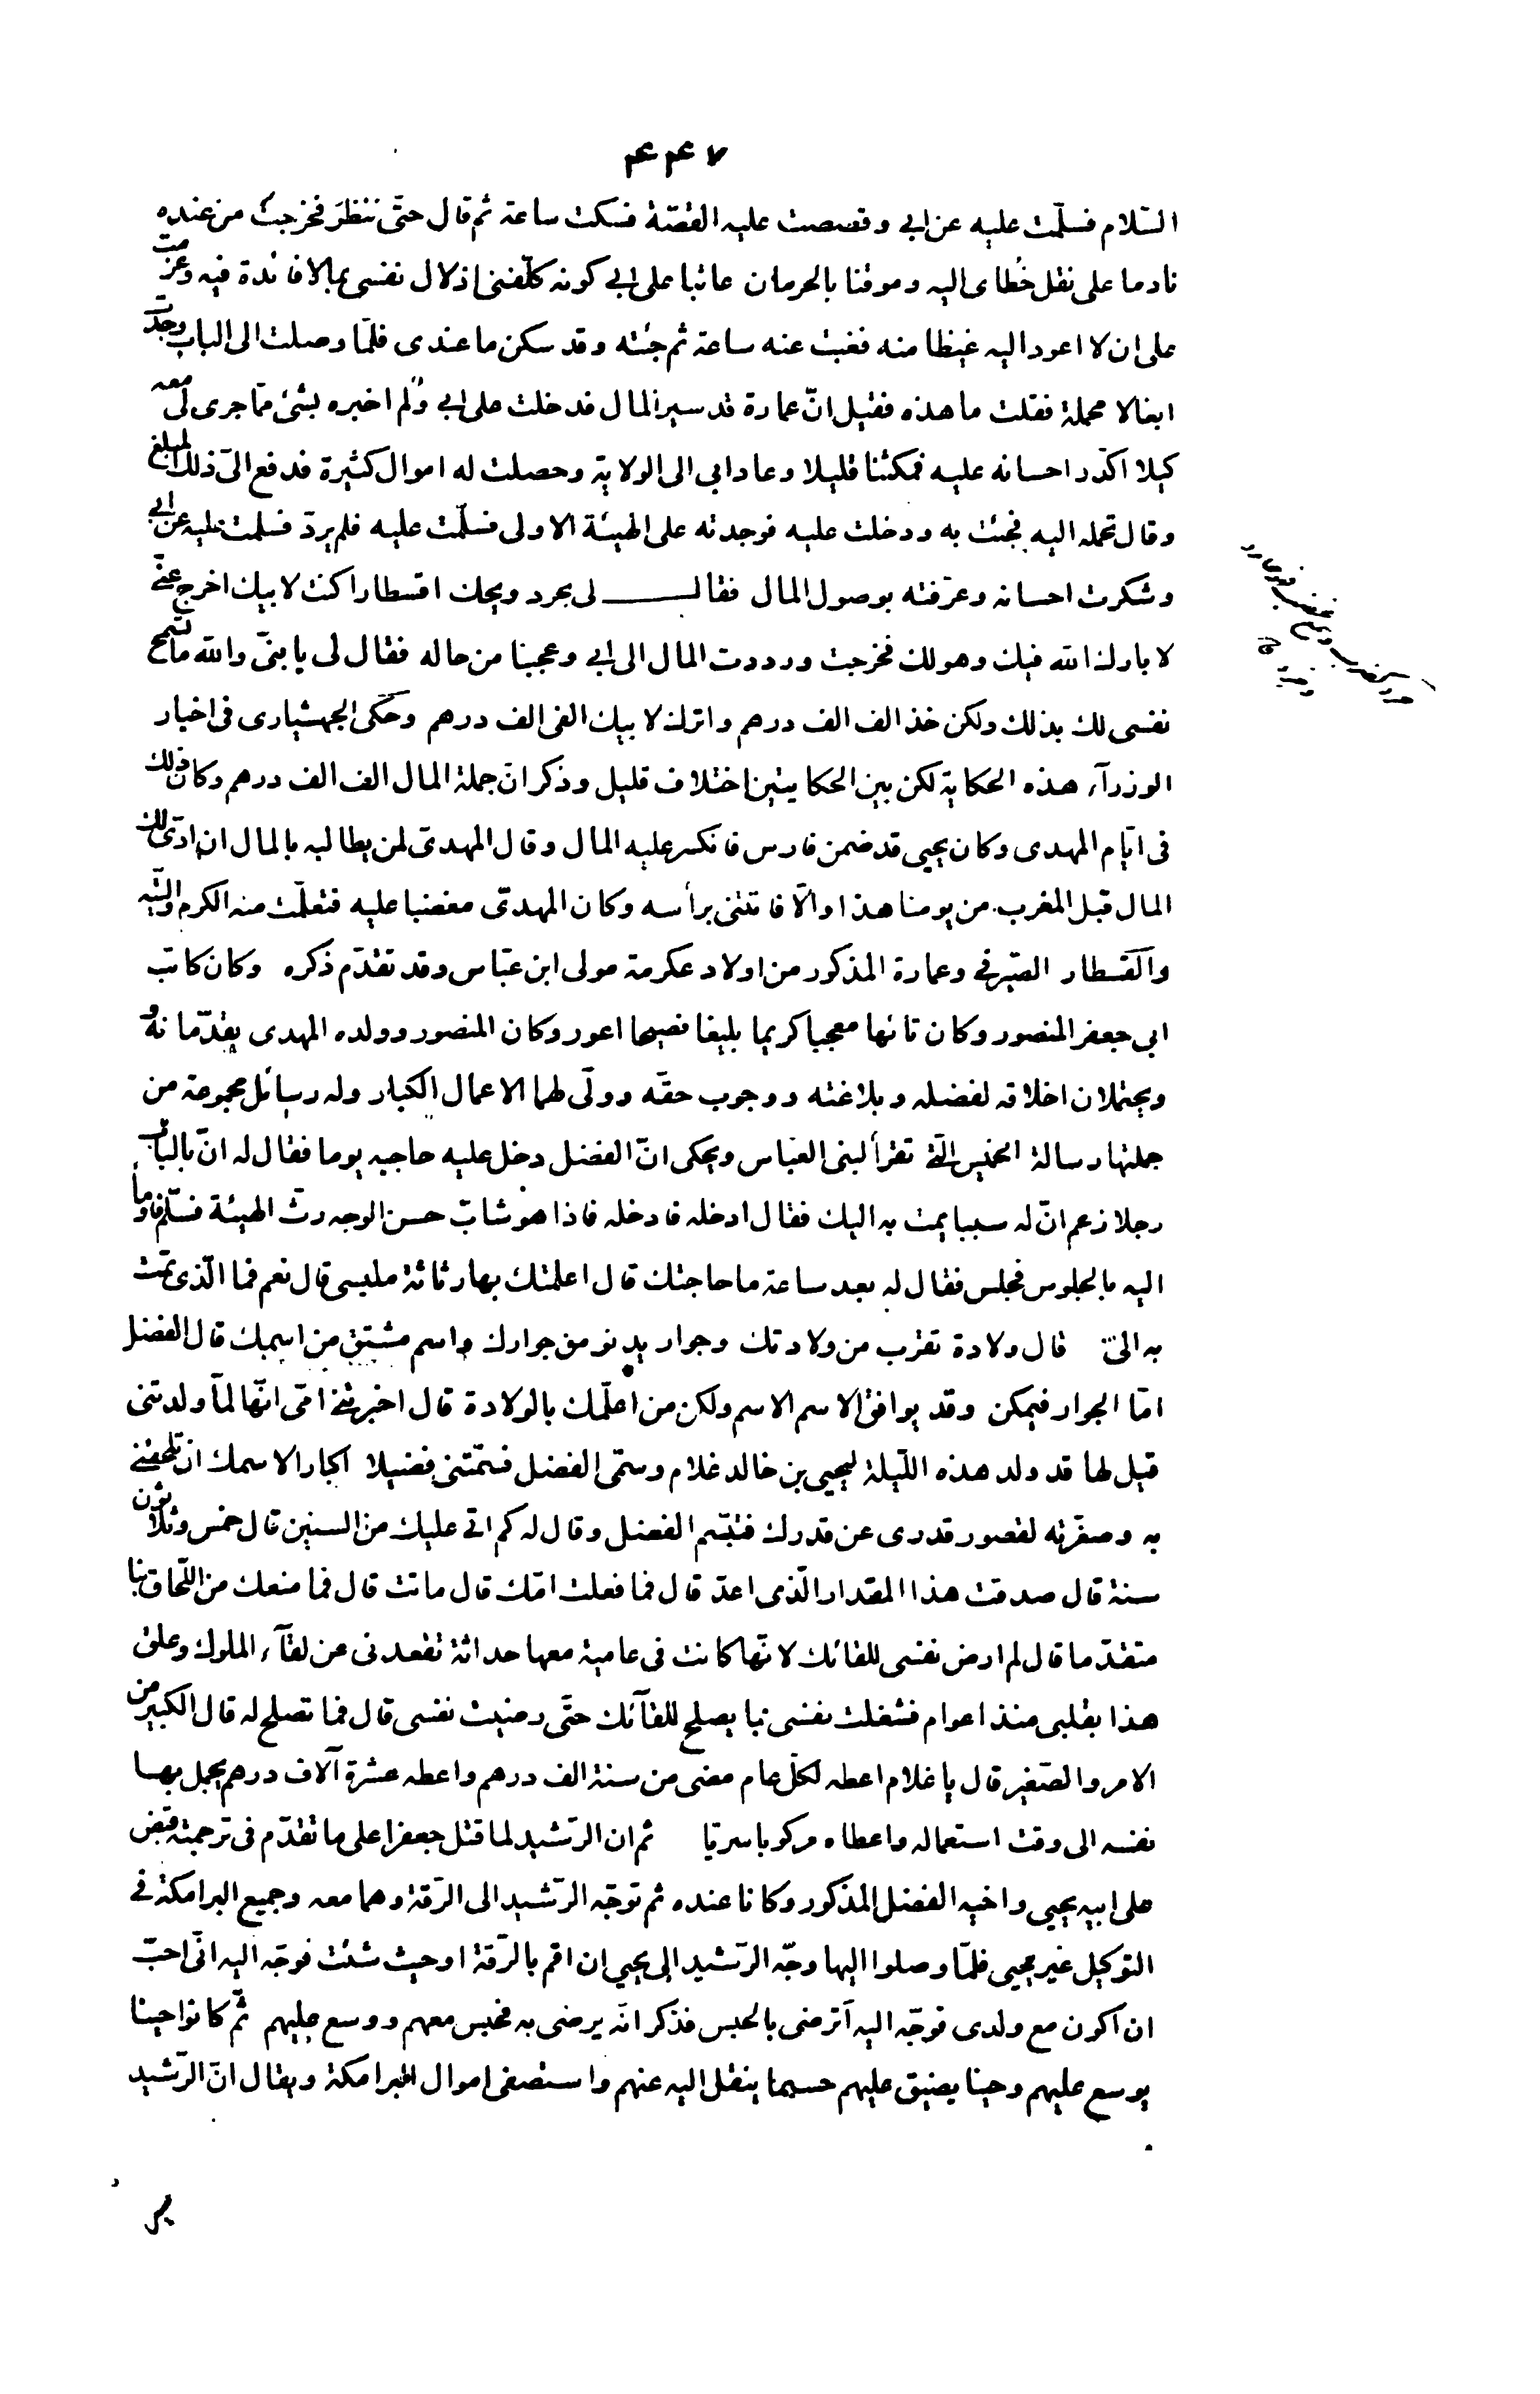 ٤٤٧
السّلام فسلّمت عليه عن ابى وقصصت عليه القصّة فسكت ساعة ثم قال حتّى ننظر فخرجت من عنده
نادما على نقل خُطاى اليه وموقنا بالحرمان عاتبا على ابى كونه كلّفنى اذلال نفسى بمالا فائدة فيه وعزمت
على ان لا اعود اليه غيظا منه فغبت عنه ساعة ثم جئته وقد سكن ما عندى فلمّا وصلت الى الباب وجدت
ابغالا محملة فقلت ما هذه فقيل انّ عمارة قد سير المال فدخلت على ابى ولم اخبره بشئ ممّا جرى لى معه
كيلا اكدّر احسانه عليه فمكثنا قليلا وعاد ابى الى الولاية وحصلت له اموال كثيرة فدفع الىّ ذلك المبلغ
وقال تحمله اليه فجئت به ودخلت عليه فوجدته على الهيئة الاولى فسلّمت عليه فلم يردّ فسلمت عليه عن ابى
وشكرت احسانه وعرّفته بوصول المال فقال لى بحرد ويحك اقسطارا كنت لابيك اخرج عنّى
لا بارك الله فيك وهو لك فخرجت ورددت المال الى ابى وعجبنا من حاله فقال لى يا بنىّ والله ما تسمح
نفسى لك بذلك ولكن خذ الف الف درهم واترك لابيك الفى الف درهم وحكى الجهشيارى فى اخبار
الوزرآء هذه الحكاية لكن بين الحكايتين اختلاف قليل وذكر انّ جملة المال الف الف درهم وكان ذلك
فى ايّام المهدى وكان يحيى قد ضمن فارس فانكسر عليه المال وقال المهدىّ لمن يطالبه بالمال ان ادّى لك
المال قبل المغرب من يومنا هذا والّا فاتنى برأسه وكان المهدىّ مغضبا عليه فتعلّمت منه الكرم والتّيه
والقسطار الصّيرفى وعمارة المذكور من اولاد عكرمة مولى ابن عبّاس وقد تقدّم ذكره وكان كاتب
ابى جعفر المنصور وكان تائها معجبا كريما بليغا فصيحا اعور وكان المنصور وولده المهدى يقدّمانه
ويحتملان اخلاقه لفضله وبلاغته ووجوب حقّه وولّى لهما الاعمال الكبار وله رسائل مجموعة من
جملتها رسالة الخميس الّتى تقرأ لبنى العباس ويحكى انّ الفضل دخل عليه حاجبه يوما فقال له انّ بالباب
رجلا زعم انّ له سببا يمت به اليك فقال ادخله فادخله فاذا هو شابّ حسن الوجه رثّ الهيئة فسلّم فاومأ
اليه بالجلوس فجلس فقال له بعد ساعة ما حاجتك قال اعلمتك بها رثاثة ملبسى قال نعم فما الّذى تمّت
به الىّ قال ولادة تقرب من ولادتك وجوار يدنو من جوارك واسم مشتق من اسمك قال الفضل
امّا الجوار فيمكن وقد يوافق الاسم الاسم ولكن من اعلمك بالولادة قال اخبرتنى امّى انّها لمّا ولدتنى
قيل لها قد ولد هذه اللّيلة ليحيى بن خالد غلام وسمّى الفضل فسمّتنى فضيلا اكبارا لاسمك ان تلحقنى
به وصغّرته لقصور قدرى عن قدرك فتبسّم الفضل وقال له كم اتى عليك من السنين قال خمس وثلاثون
سنة قال صدقت هذا المقدار الّذى اعدّ قال فما فعلت امّك قال ماتت قال فما منعك من اللّحاق بنا
متقدّما قال لم ارض نفسى للقائك لانّها كانت فى عامية معها حداثة تقعدنى عن لقآء الملوك وعلق
هذا بقلبى منذ اعوام فشغلت نفسى بما يصلح للقآئك حتّى رضيت نفسى قال فما تصلح له قال الكبير من
الامر والصّغير قال يا غلام اعطه لكلّ عام مضى من سنة الف درهم واعطه عشرة آلاف درهم يجمل بهـا
نفسه الى وقت استعماله واعطاه مركوبا سريّا ثم ان الرّشيد لما قتل جعفرا على ما تقدّم فى ترجمته قبض
على ابيه يحيى واخيه الفضل المذكور وكانا عنده ثم توجّه الرّشيد الى الرّقة وهما معه وجميع البرامكة فى
التوكيل غير يحيى فلمّا وصلوا اليها وجّه الرّشيد الى يحيى ان اقم بالرّقة او حيث شئت فوجّه اليه انّى احبّ
ان اكون مع ولدى فوجّه اليه أترضى بالحبس فذكر انّه يرضى به فحبس معهم ووسع عليهم ثمّ كانوا حينا
يوسع عليهم وحينا يضيق عليهم حسبما ينقل اليه عنهم واستصفى اموال البرامكة ويقال انّ الرّشيد